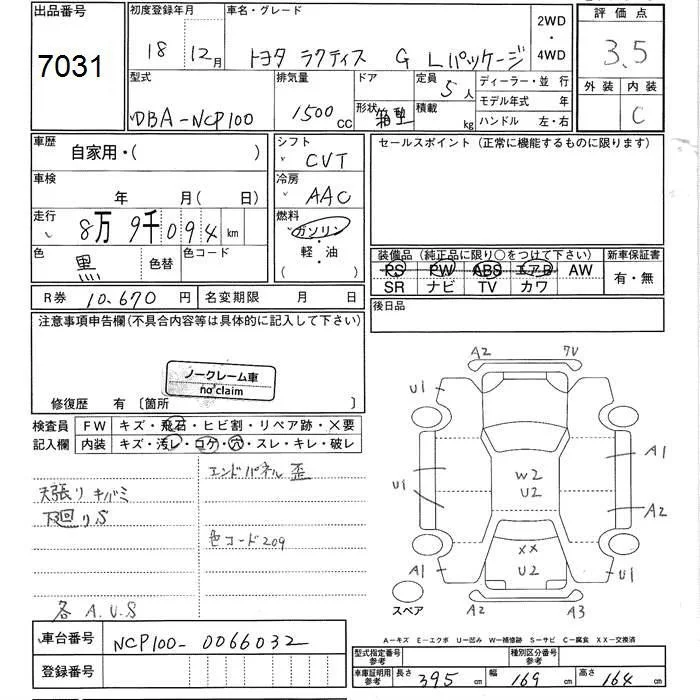 出品番号
7031
初度登録年月
18 12月
車名・グレード
トヨタ ラクティス G Lパッケージ
2WD
・
4WD
評価点
3.5
外装 内装
C
型式
DBA-NCP100
排気量
1500cc
ドア
形状 箱型
定員
5人
積載
kg
ディーラー・並行
モデル年式 年
ハンドル 左・右
車歴
自家用・( )
シフト
CVT
セールスポイント(正常に機能するものに限ります)
車検
年 月( 日)
冷房
AAC
走行
8万9千094km
燃料
ガソリン
・
軽・油
( )
色
黒
色替
色コード
装備品(純正品に限り○をつけて下さい)
PS PW ABS エアB AW
SR ナビ TV カワ
新車保証書
有・無
R券 10,670円
名変期限 月 日
後日品
注意事項申告欄(不具合内容等は具体的に記入して下さい)
ノークレーム車
no claim
修復歴 有〔箇所 〕
検査員
記入欄
FW キズ・飛石・ヒビ割・リペア跡・X要
内装 キズ・汚レ・コゲ・穴・スレ・キレ・破レ
エンドパネル歪
天張りキバミ
下廻りS
色コード209
各A.U.S
A2 7V
U1 A1
A1
W2
U2
U1 A2
XX
A1 U2 U1
スペア
A2 A3
A-キズ E-エクボ U-凹み W-補修跡 S-サビ C-腐食 XX-交換済
車台番号
NCP100-0066032
登録番号
型式指定番号
参考
種別区分番号
参考
車庫証明用
参考
長さ 395 cm 幅 169 cm 高さ 164 cm